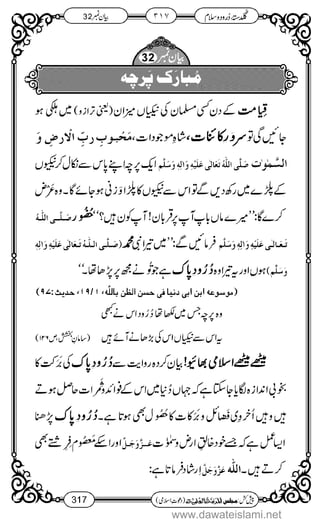 بیان نمبر 32
۳۱۷
گلدستۂ درود و سلام
بیان نمبر 32
مُبارَک پَرچہ
قِیامت کے دن کسی مسلمان کی نیکیاں میزان (یعنی ترازو) میں ہلکی ہو
جائیں گی تو سرورِ کائنات، شاہِ موجودات، مَحبوبِ ربُّ الْارضِ وَ
السَّمٰوٰت صَلَّی اللّٰہُ تَعَالٰی عَلَیْہِ وَاٰلِہٖ وَسَلَّم ایک پرچہ اپنے پاس سے نکال کر نیکیوں
کے پلڑے میں رکھ دیں گے تو اس سے نیکیوں کا پلڑا وزنی ہو جائے گا۔ وہ عَرْض
کرے گا: ”میرے ماں باپ آپ پر قربان! آپ کون ہیں؟“ حُضُور صَلَّی اللّٰہُ
تَعَالٰی عَلَیْہِ وَاٰلِہٖ وَسَلَّم فرمائیں گے: ”میں تیرا نبی محمد (صَلَّی اللّٰہُ تَعَالٰی عَلَیْہِ وَاٰلِہٖ
وَسَلَّم) ہوں اور یہ تیرا وہ دُرُودِ پاک ہے جو تُو نے مجھ پر پڑھا تھا۔“
(موسوعہ ابن ابی دنیا فی حسن الظن باللّٰہ، ۱/۹۱، حدیث: ۹۷)
وہ پرچہ جس میں لکھا تھا دُرُود اس نے کبھی
یہ اس سے نیکیاں اس کی بڑھانے آئے ہیں (سامانِ بخشش، ص۱۲۶)
میٹھے میٹھے اسلامی بھائیو! بیان کردہ روایت سے دُرُودِ پاک کی بَرَکت کا
بخوبی اندازہ لگایا جا سکتا ہے کہ جہاں دُنیا میں اس کے فوائد و ثَمَرات حاصل ہوتے
ہیں وہیں اُخرَوی فضائل و بَرَکات کا حُصُول بھی ہوتا ہے۔ دُرُودِ پاک پڑھنا
ایسا عمل ہے کہ جسے خود خالقِ ارض و سمٰوٰت عَزَّوَجَلَّ اور اسکے مَعْصُوم فِرِشتے بھی
کرتے ہیں۔ اللّٰہ عَزَّوَجَلَّ اِرشاد فرماتا ہے:
317
www.dawateislami.net